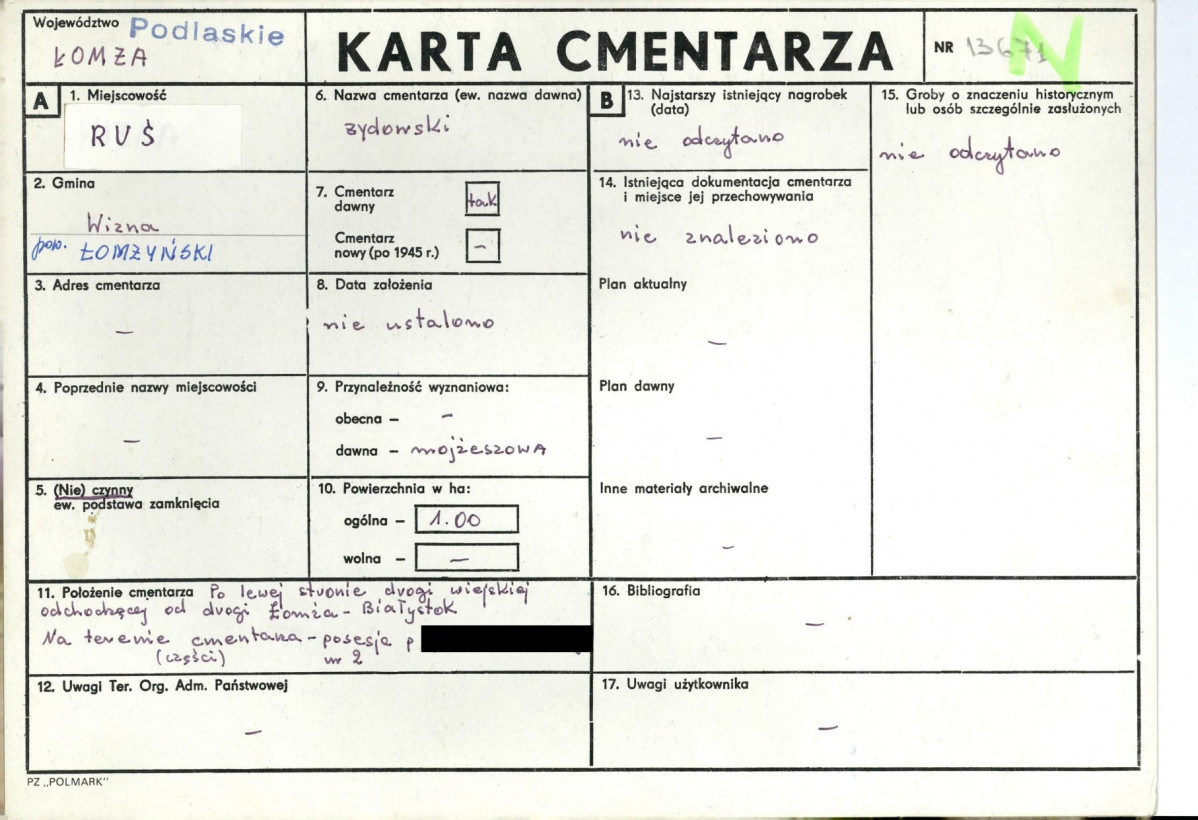 Województwo Podlaskie
ŁOMŻA
KARTA CMENTARZA
NR 13671
N
A
1. Miejscowość
RUŚ
2. Gmina
Wizna
pow. ŁOMŻYŃSKI
3. Adres cmentarza
–
4. Poprzednie nazwy miejscowości
–
5. (Nie) czynny
ew. podstawa zamknięcia
6. Nazwa cmentarza (ew. nazwa dawna)
żydowski
7. Cmentarz
dawny tak
Cmentarz
nowy (po 1945 r.) –
8. Data założenia
nie ustalono
9. Przynależność wyznaniowa:
obecna – –
dawna – mojżeszowa
10. Powierzchnia w ha:
ogólna – 1.00
wolna – –
11. Położenie cmentarza Po lewej stronie drogi wiejskiej
odchodzącej od drogi Łomża – Białystok
Na terenie cmentarza – posesja p
(części) nr 2
12. Uwagi Ter. Org. Adm. Państwowej
–
B
13. Najstarszy istniejący nagrobek
(data)
nie odczytano
14. Istniejąca dokumentacja cmentarza
i miejsce jej przechowywania
nie znaleziono
Plan aktualny
–
Plan dawny
–
Inne materiały archiwalne
–
15. Groby o znaczeniu historycznym
lub osób szczególnie zasłużonych
nie odczytano
16. Bibliografia
–
17. Uwagi użytkownika
–
PZ „POLMARK"